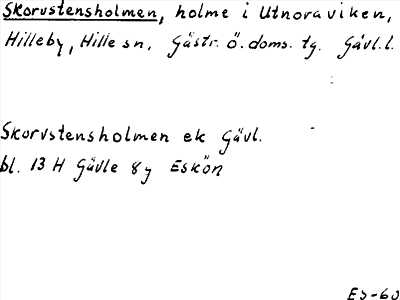 Skorvstensholmen, holme i Utnoraviken,
Hilleby, Hille sn. Gästr. ö. doms. tg. Gävl. l.
Skorvstensholmen ek Gävl.
bl. 13 H Gävle 8y Eskön